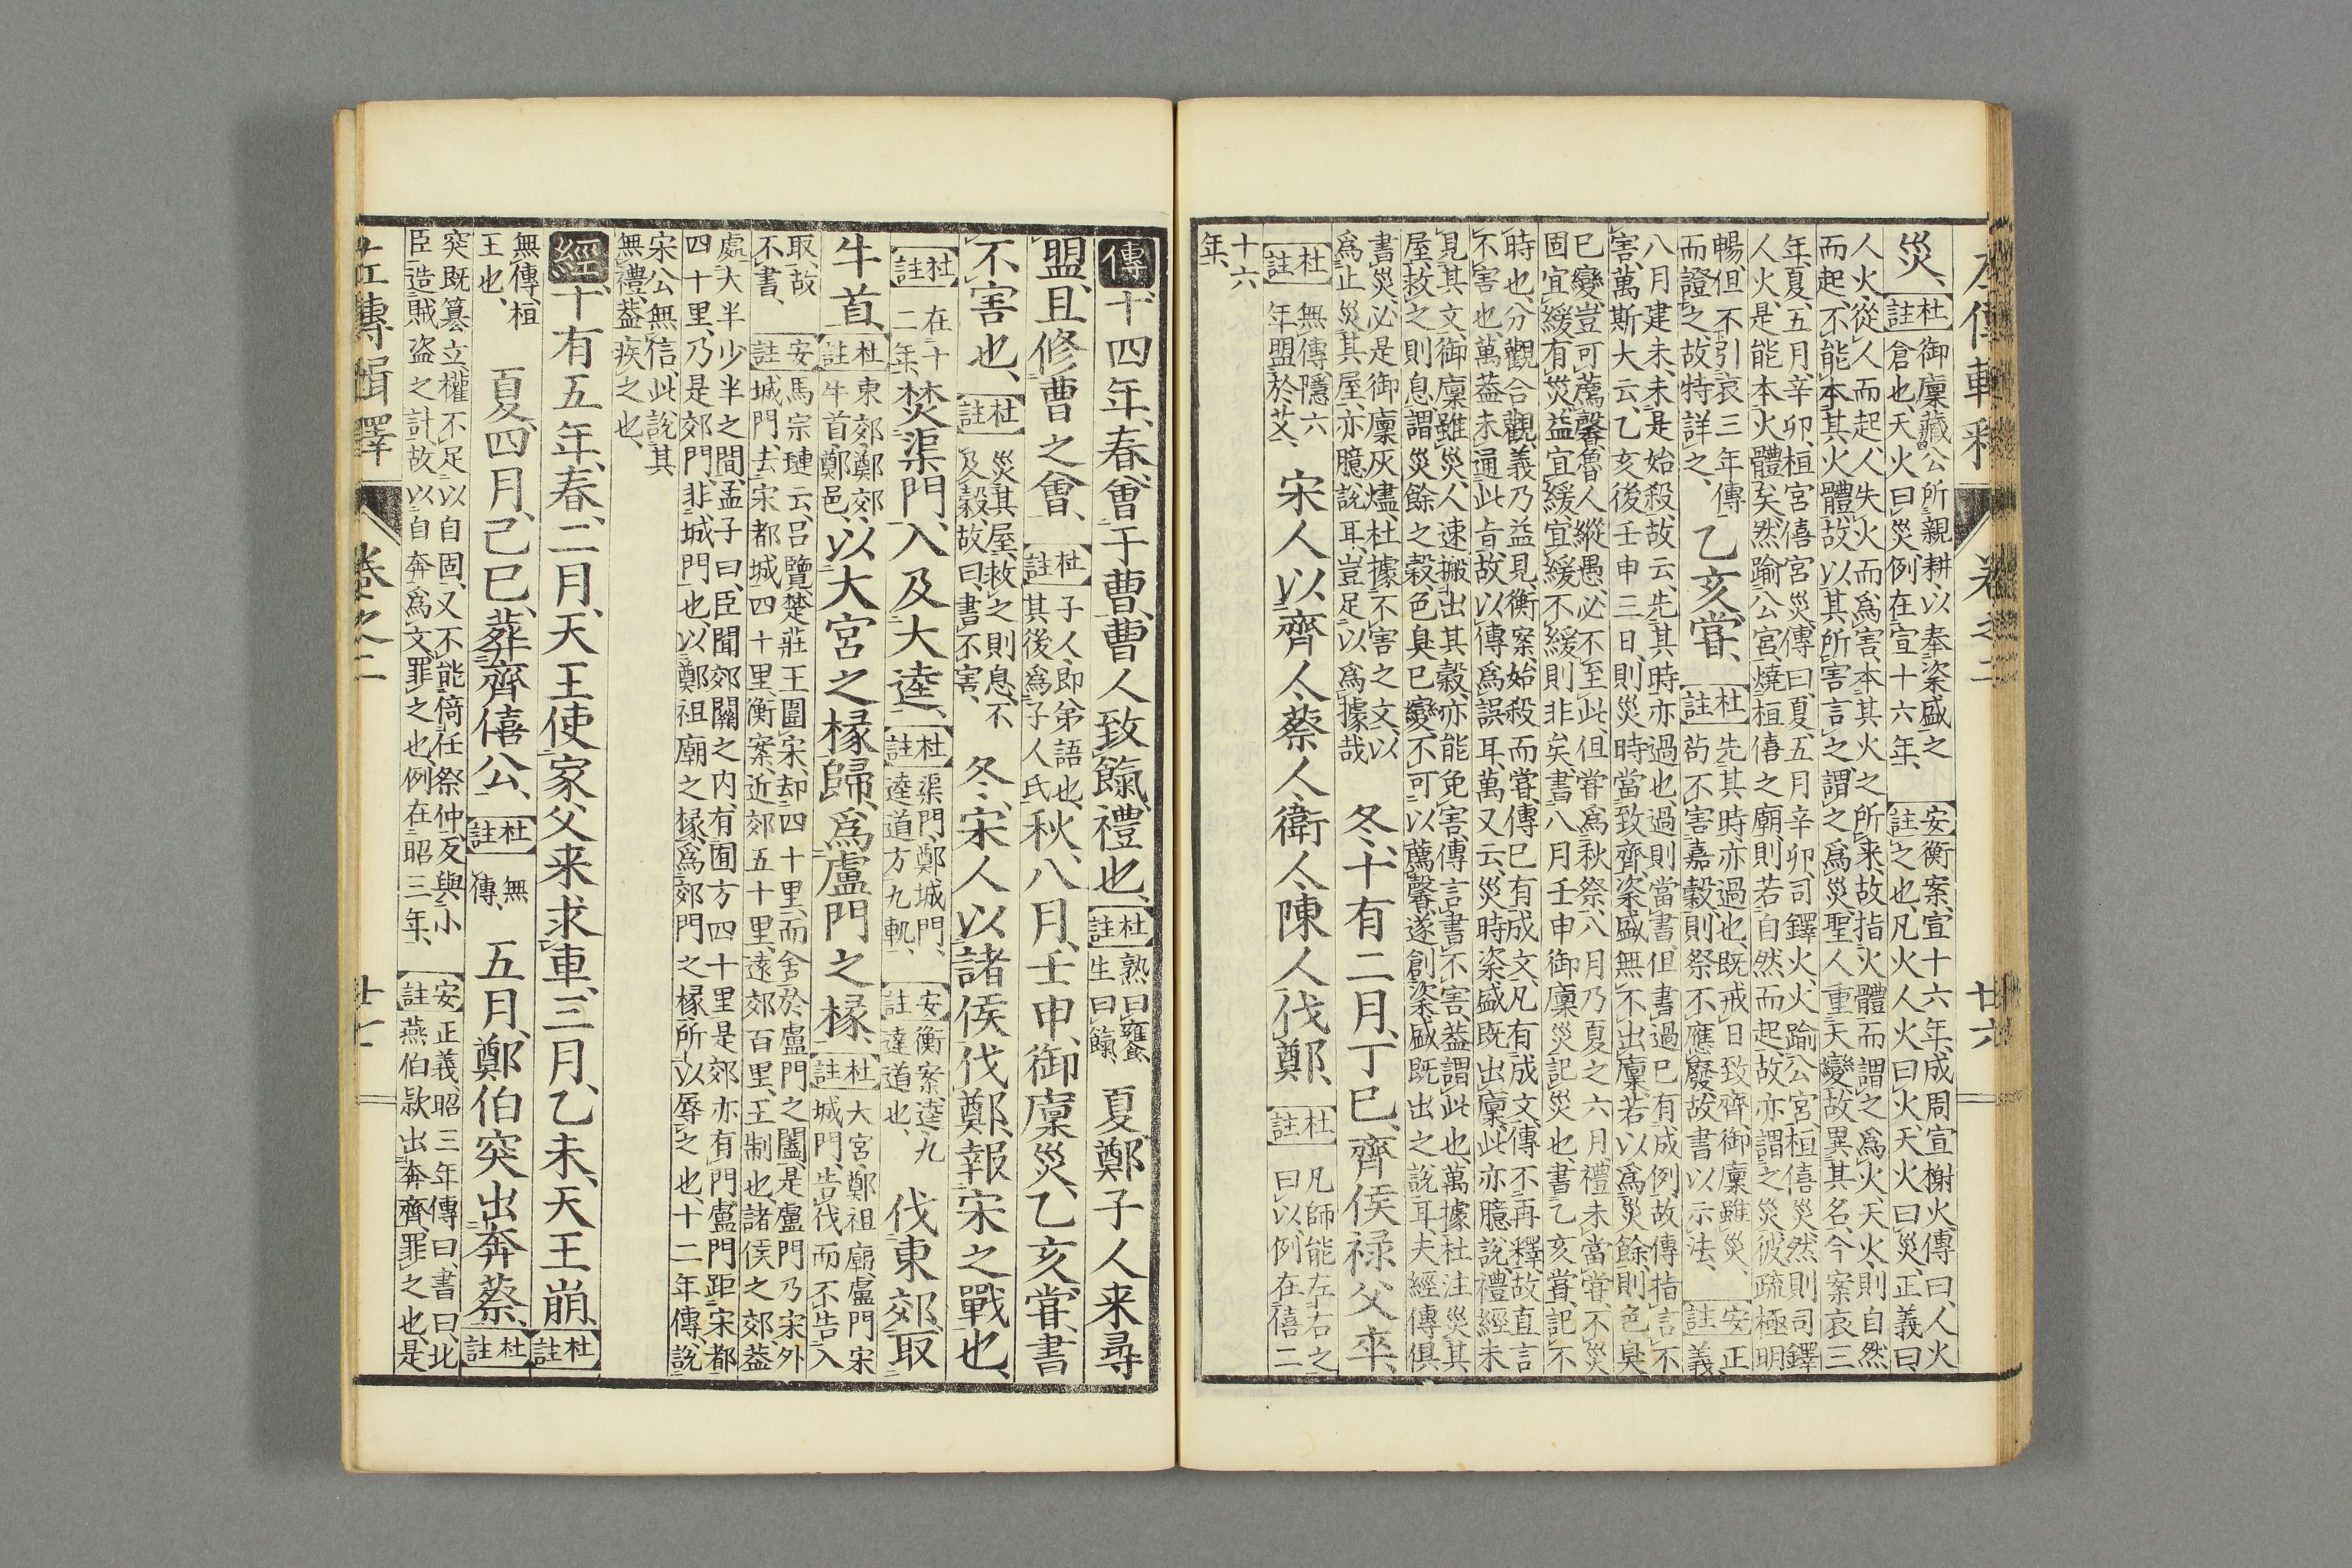 左傳輯釋 卷之二 廿六
災、杜註御廩藏公所親耕、以奉粢盛之倉也、天火曰災、例在宣十六年、安註衡案、宣十六年、成周宣榭火、傳曰、人火之也、凡火、人火曰火、天火曰災、正義曰、
人火、從人而起、人失火而爲害、本其火之所来、故指火體而謂之爲火、天火則自然而起、不能本其火體、故以其所害言之、謂之爲災、聖人重天變、故異其名、今案哀三
年、夏五月辛卯、桓宮僖宮災、傳曰、夏五月辛卯、司鐸火、火踰公宮、桓僖災、然則司鐸人火、是能本火體矣、然踰公宮、燒桓僖之廟、則若自然而起、故亦謂之災、彼疏極明
暢、但不引哀三年傳而證之、故特詳之、乙亥、嘗、杜註先其時、亦過也、既戒日致齊、御廩雖災、苟不害嘉穀、則祭不應廢、故書以示法、安註正義
八月建未、未是始殺、故云、先其時亦過也、過則當書、但書過已有成例、故傳指言不害、萬斯大云、乙亥後壬申三日、則災時當致齊、粢盛無不出廩、若以爲災餘、則色臭
已變、豈可薦馨、魯人縱愚、必不至此、但嘗爲秋祭、八月乃夏之六月、禮未當嘗、不災固宜緩、有災益宜緩、宜緩不緩、則非矣、書八月壬申御廩災、記災也、書乙亥嘗、記不
時也、分觀合觀、義乃益見、衡案、始殺而嘗、傳已有成文、凡有成文、傳不再釋、故直言不害也、萬蓋未通此旨、故以傳爲誤耳、萬又云、災時粢盛既出廩、此亦臆說、禮經未
見其文、御廩雖災、人速搬出其穀、亦能免害、傳言書不害、蓋謂此也、萬據杜注災其屋、救之則息、謂災餘之穀、色臭已變、不可以薦馨、遂創粢盛既出之說耳、夫經傳俱
書災、必是御廩灰燼、杜據不害之文、以爲止災其屋、亦臆說耳、豈足以爲據哉 冬、十有二月、丁巳、齊侯祿父卒、
杜註無傳、隱六年盟於艾、宋人以齊人蔡人衛人陳人伐鄭、杜註凡師能左右之曰以、例在僖二
十六年、
傳十四年、春、會于曹、曹人致餼、禮也、杜註熟曰饔、生曰餼、夏、鄭子人来尋
盟、且修曹之會、杜註子人、即弟語也、其後爲子人氏、秋、八月、壬申、御廩災、乙亥、嘗、書
不害也、杜註災其屋、救之則息、不及穀、故曰、書不害、冬、宋人以諸侯伐鄭、報宋之戰也、
杜註在十二年、焚渠門、入及大逵、杜註渠門、鄭城門、逵道方九軌、安註衡案、逵、九達道也、伐東郊、取
牛首、杜註東郊、鄭郊、牛首、鄭邑、以大宮之椽歸、爲盧門之椽、杜註大宮、鄭祖廟、盧門、宋城門、告伐而不告入
取、故不書、安註馬宗璉云、呂覽、楚莊王圍宋、却四十里、而舍於盧門之闔、是盧門乃宋外城門、去宋都城四十里、衡案、近郊五十里、遠郊百里、王制也、諸侯之郊、蓋
處大半少半之間、孟子曰、臣聞郊關之内、有囿方四十里、是郊亦有門、盧門距宋都四十里、乃是郊門、非城門也、以鄭祖廟之椽、爲郊門之椽、所以辱之也、十二年傳、說
宋公無信、此說其無禮、蓋疾之也、
經、十有五年、春、二月、天王使家父来求車、三月、乙未、天王崩、杜註
無傳、桓王也、夏、四月、己巳、葬齊僖公、杜註無傳、五月、鄭伯突出奔蔡、杜註
突既簒立、權不足以自固、又不能倚任祭仲、反與小臣造賊盜之計、故以自奔爲文、罪之也、例在昭三年、安註正義、昭三年傳曰、書曰、北燕伯款出奔齊、罪之也、是
左傳輯釋 卷之二 廿七